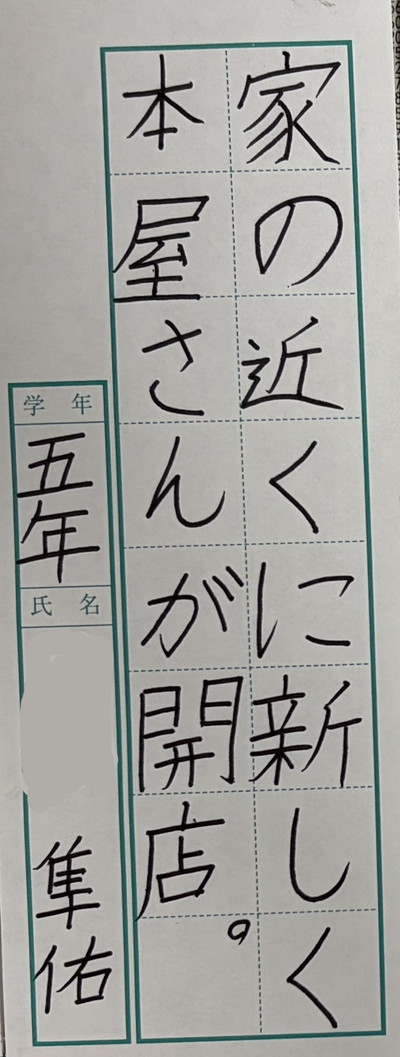 家の近くに新しく
本屋さんが開店。
学年
五年
氏名
隼佑